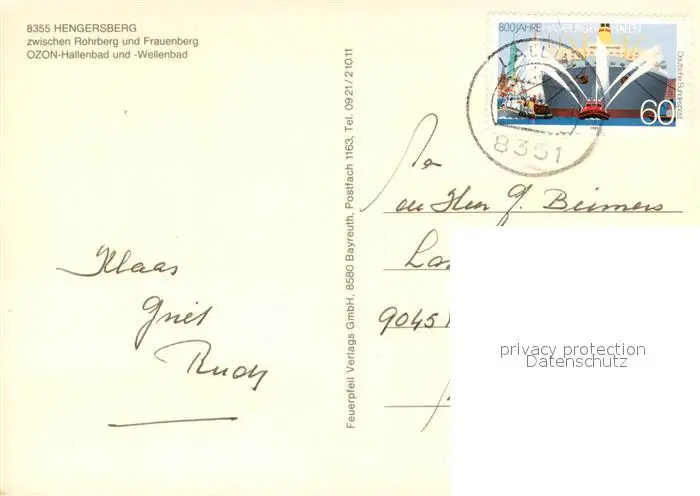 8355 HENGERSBERG
zwischen Rohrberg und Frauenberg
OZON-Hallenbad und -Wellenbad
Klaas
Griet
Rudy
Feuerpfeil Verlags GmbH, 8580 Bayreuth, Postfach 1163, Tel. 0921/21011
800 JAHRE HAMBURGER HAFEN
Deutsche Bundespost
60
8351
Fa
en Heer G. Beimers
La
9045
privacy protection
Datenschutz